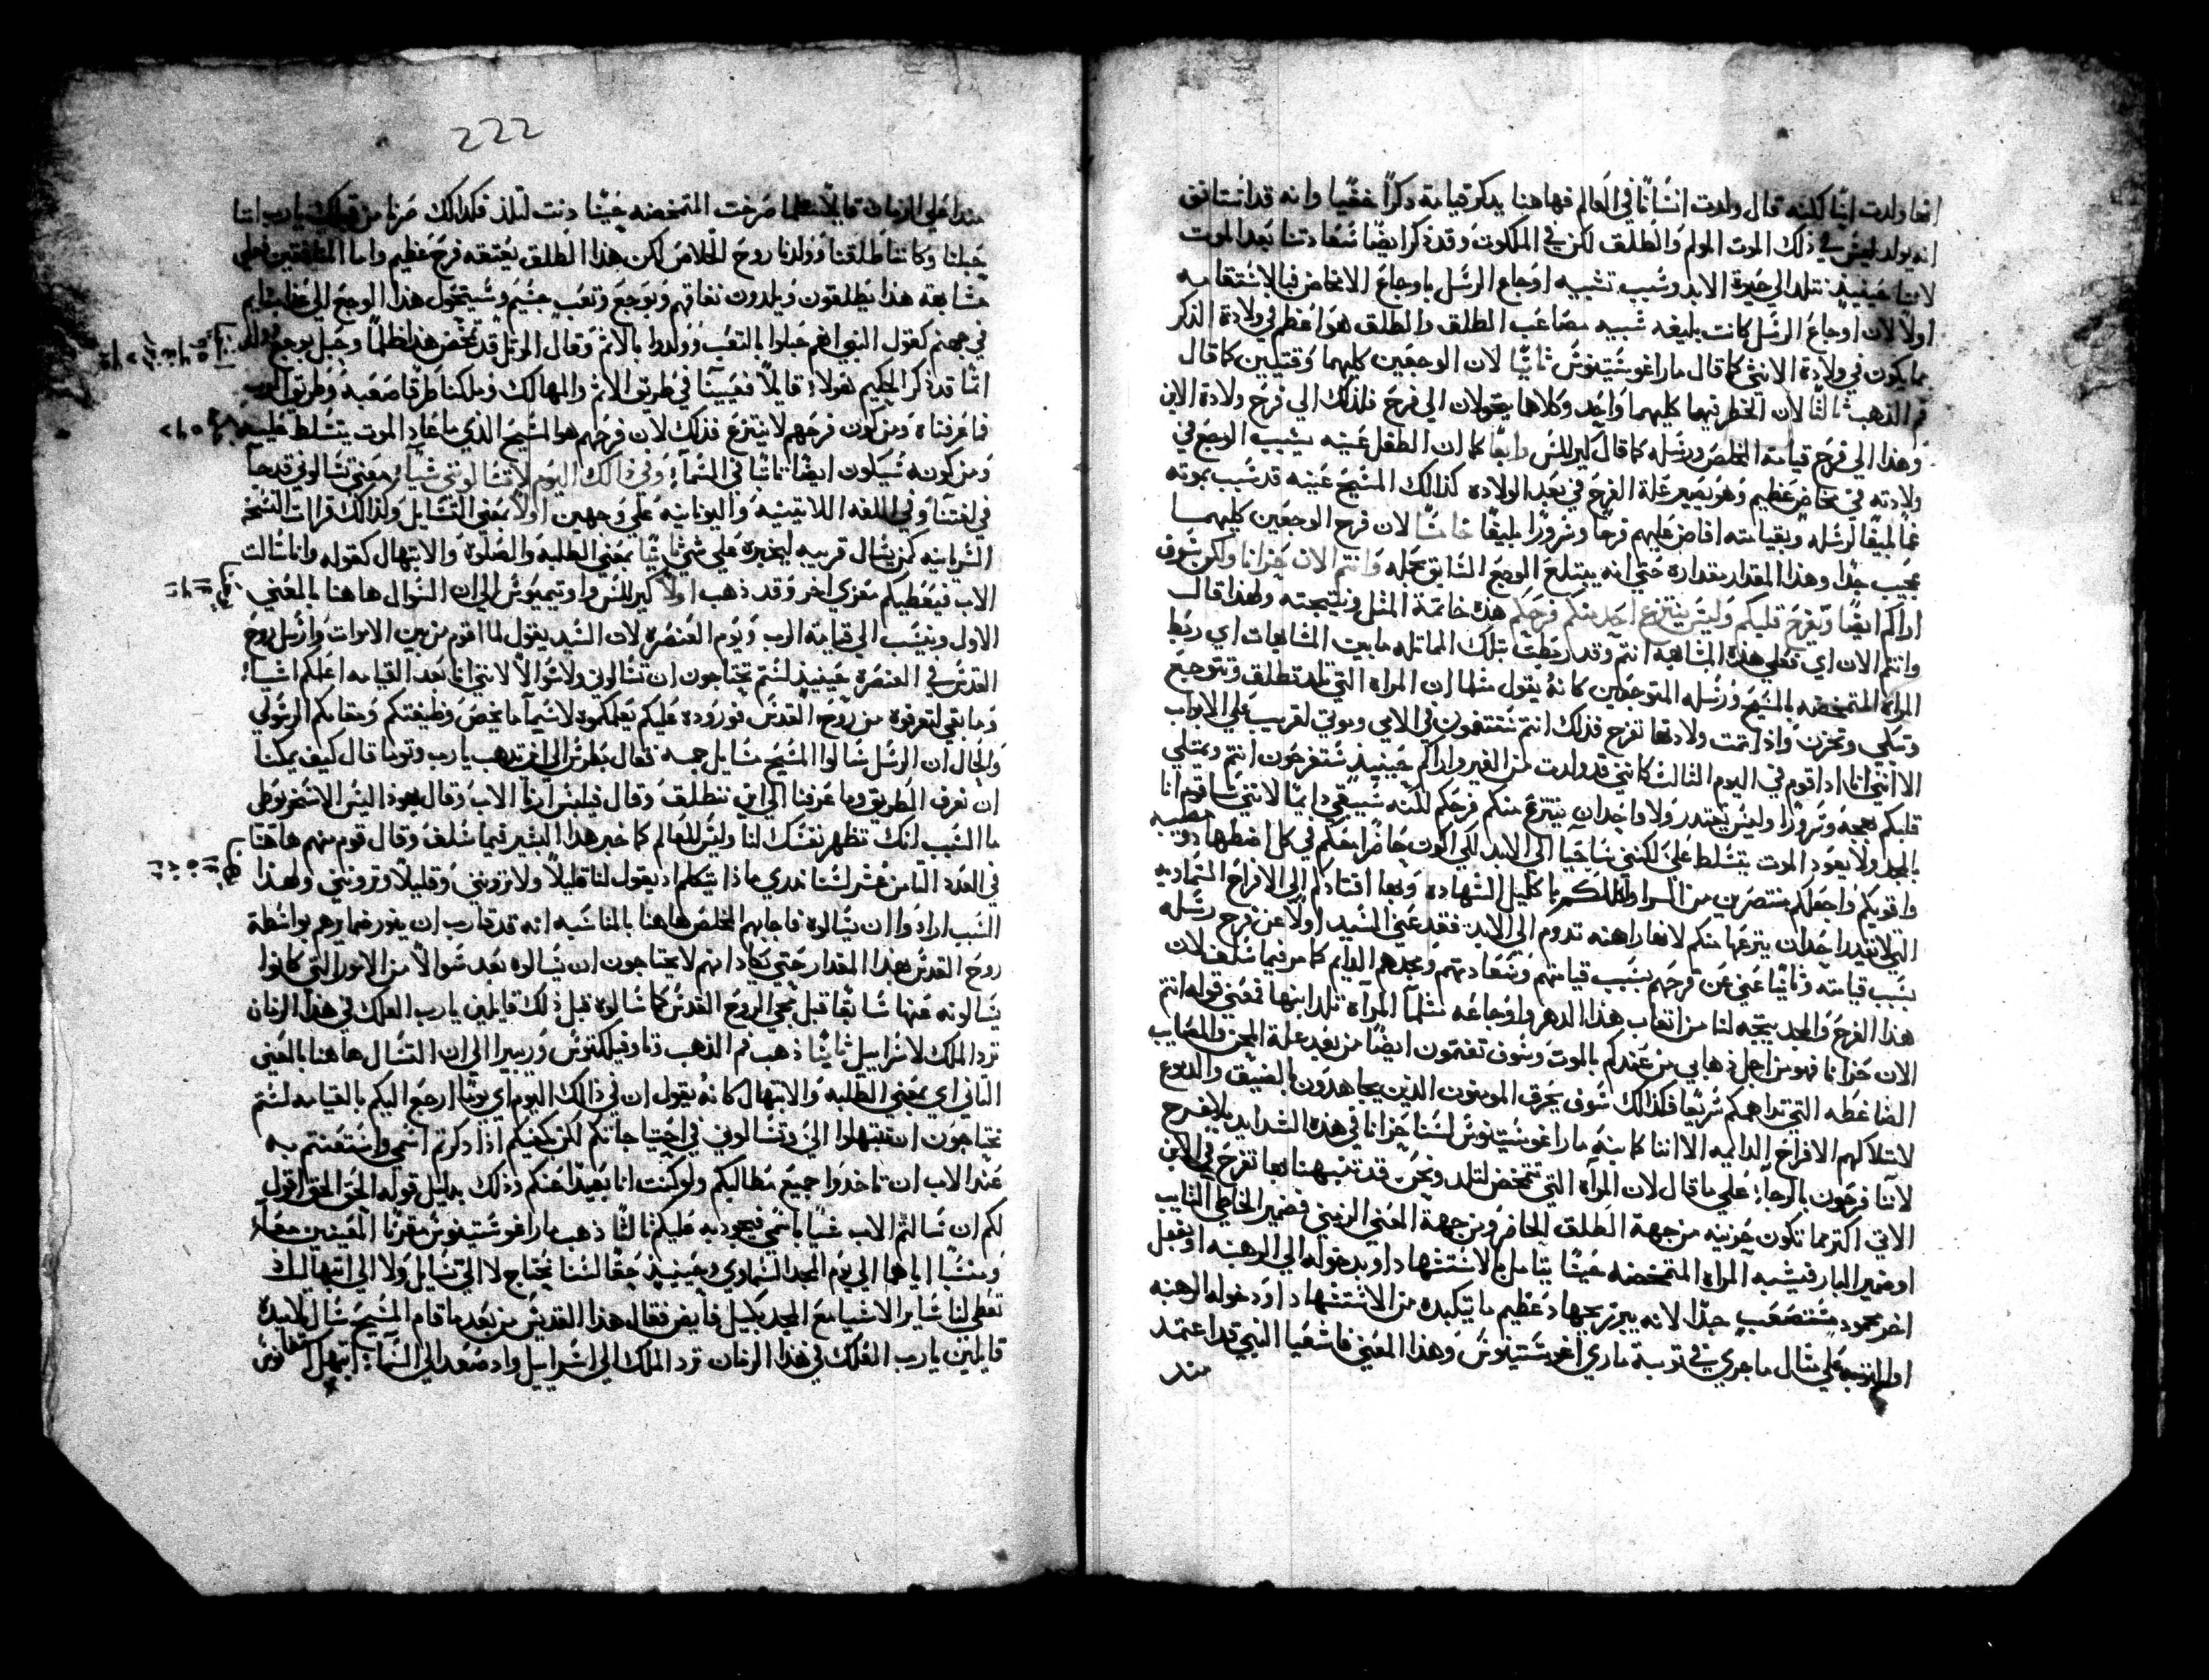 انها ولدت ابنًا لكنه قال ولدت انسانًا في العالم فهاهنا يذكر قيامته ذكرًا خفيًا وانه قد استانف
انه يولد ليس في ذلك الموت المولم والطلق لكن في الملكوت وقد ذكر ايضًا سعادتنا بعد الموت
لاننا حينيذٍ نتلد الي حيوة الابد وسبب تشبيه اوجاع الرسل باوجاع الانخاض فبالاستقامه
اولًا لان اوجاع الرسل كانت بليغه شبيه مصاعب الطلق والطلق هو اعظم في ولادة الذكر
مما يكون في ولادة الانثي كما قال ماراغوستينوس ثانيًا لان الوجعين كليهما وقتيين كما قال
فم الذهب ثالثًا لان الخطر فيهما كليهما واحد وكلاهما يتحولان الي فرح فلذلك الي فرح ولادة الابن
وهذا الي فرح قيامة المخلص ورسله كما قال كيرللس رابعًا كما ان الطفل عينه يسبب الوجع في
ولادته في مخاض عظيم وهو يصير علة الفرح في بعد الولاده كذالك المسيح عينه قد سبب بموته
غمًا بليغًا لرسله وبقيامته افاض عليهم فرحًا وسرورًا بليغًا خامسًا لان فرح الوجعين كليهما
عجيب جدًا وهذا المقدار مقداره حتي انه يبتلع الوجع السابق بجمله وانتم الان حزانا ولكن سوف
اراكم ايضًا وتفرح قلبكم وليس ينتزع احد منكم فرحكم هذه خاتمة المثل ونتيجته ولهذا قال
وانتم الان اي فعلي هذه المشابهه انتم وقد ربطت بتلك المماثله ما بين المشابهات اي ربط
المراه المتمخضه بالمسيح ورسله المتوجعين كانه يقول مثلما ان المراه التي تلد تطلق وتتوجع
وتبكي وتحزن واذا تمت ولادتها تفرح فذلك انتم ستغتمون في الامي وموتي لقريب علي الابواب
الا انني انا اذا قوم في اليوم الثالث كانني قد ولدت من القبر واراكم حينيذٍ ستفرحون انتم ويمتلي
قلبكم بهجة وسرورًا وليس يقتدر ولا واحد ان ينتزع منكم فرحكم لكنه سيبقي دايمًا لانني ساقوم انا
بالمجد ولا يعود الموت يتسلط علي لكنني ساحيا الي الابد لكي اكون حاضرًا معكم في كل اضطهاد ومصيبه
واقويكم واجعلكم منتصرين من السرا واكللكم باكليل الشهاده وبها اقتادكم الي الافراح السماديه
التي لا يقتدر احد ان ينزعها منكم لانها راهنه تدوم الي الابد فقد عني السيد اولًا عن فرح رسله
بسبب قيامته وثانيًا عني عن فرحهم بسبب قيامتهم وسعادتهم ومجدهم الدايم كما مر فيما سلف لان
هذا الفرح والمجد ينتجه لنا من اتعاب هذا الدهر واوجاعه مثلما المراة تلد ابنها فمعني قوله انتم
الان حزانا فهو من اجل ذهابي من عندكم بالموت وسوف تغتمون ايضًا من بعد علة المحن والمصايب
الضاغطه التي تداهمكم سريعًا فكذالك سوف يحزن المومنون الذين يجاهدون بالضيق والدموع
لامتلاكهم الافراح الدايمه الا اننا كما نبه ماراغوستينوس لسنا حزانا في هذه الشدايد بلا فرح
لاننا فرحون بالرجاء علي ما قال لان المراه التي تتمخض لتلد ونحن قد تنبهنا بها تفرح في الابن
الاتي اكثر مما تكون حزينه من جهة الطلق الحاضر ومن جهة المعني الرمزي فضمير الخاطي التايب
او ضمير البار فيشبه المراه المتمخضه حينما يتامل بالاستشهاد او بدخوله الي الرهبنه او بفعل
اخر محمود مستصعب جدًا لانه يبرز بجهاد عظيم ما يتكبده من الاستشهاد او دخوله الرهبنه
او التوبه علي مثال ما جري في توبة ماري اغوستينوس وهذا المعني فاشعيا النبي قد اعتمد
مند
222
مندا علي الزمان قايلًا مثلما صرخت المتمخضه حينما دنت لتلد فكذالك صرنا من قبلك يارب اننا
حبلنا وكاننا طلقنا وولدنا روح الخلاص لكن هذا الطلق يعتقه فرح عظيم واما المنافقين فعلي
مشابهة هذا يطلقون ويلدون نفاقهم وبوجع وتعب جسيم وسيتحول هذا الوجع الي عذاب دايم
في جهنم كقول النبي انهم حبلوا بالتعب وولدوا بالاثم وقال المرتل قد تمخض هذا ظلمًا وحبل بوجع وولد
اثمًا قد ذكر الحكيم نقولا قايلًا تعبينا في طريق الاثم والمهالك وسلكنا طرقًا صعبه وطريق الرب
فما عرفناه ومن كون فرحهم لا ينتزع فذلك لان فرحهم هو المسيح الذي ما عاد الموت يتسلط عليه
ومن كونه سيكون ايضًا ثابتًا في السماء وفي ذالك اليوم لا تسالونني شيا معني تسالونني قد جا
في لغتنا وفي اللغه اللاتينيه واليونانيه علي وجهين اولًا بمعني التسايل ولذالك قرات النسخه
السريانيه كمن يسال قريبه ليخبره علي شي ثانيًا بمعني الطلبه والصلوة والابتهال كقوله وانا سالت
الاب فيعطيكم معزي اخر وقد ذهب اولًا كيرللس واوتيميوس الي ان السوال هاهنا بالمعني
الاول وينسب الي قيامة الرب ويوم العنصره لان السيد يقول لما اقوم من بين الاموات وارسل روح
القدس في العنصره حينيذٍ لستم تحتاجون ان تسالوني ولا سوالًا لانني انا بعد القيامه اعلمكم اشياء
وما بقي لتعرفوه من روح القدس فوروده عليكم يعلمكموه لاسيما ما يخص وظيفتكم ومقامكم الرسولي
والحال ان الرسل سالوا المسيح مسايل جمه فقال بطرس الي اين تذهب يارب وتوما قال كيف يمكننا
ان نعرف الطريق وما عرفنا الي اين تنطلق وقال فيلبس ارنا الاب وقال يهوذا ليس الاسخريوطي
ما السبب انك تظهر نفسك لنا وليس للعالم كما خبر هذا البشير فيما سلف وقال قوم منهم هاهنا
في العدد الثامن عشر لسنا ندري ماذا يتكلم اذ يقول لنا قليلًا ولا ترونني وقليلًا وترونني ولهذا
السبب ارادوا ان يسالوه فاجابهم المخلص هاهنا بالمناسبه انه قد قارب ان ينور ضمايرهم بواسطة
روح القدس بهذا المقدار حتي يكاد انهم لا يحتاجون ان يسالوه بعد سوالًا من الامور التي كانوا
يسالونه عنها سابقًا قبل مجي الروح القدس كما سالوه قبل ذلك قايلين يارب العلك في هذا الزمان
ترد الملك لاسراييل ثانيًا ذهب فم الذهب وثاوفيلكتوس وريبيرا الي ان التسال هاهنا بالمعني
الثاني اي بمعني الطلبه والابتهال كانه يقول ان في ذالك اليوم اي يوم ارجع اليكم بالقيامه لستم
تحتاجون ان تبتهلوا الي وتسالوني في احتياجاتكم لكن يكفيكم اذا ذكرتم اسمي واستعنتم به
عند الاب ان تاخذوا جميع مطالبكم ولو كنت انا بعيدًا عنكم وذلك بدليل قوله الحق الحق اقول
لكم ان سالتم الاب شيًا باسمي فيجود به عليكم ثالثًا ذهب ماراغوستينوس مقرنًا المعنيين معًا
ومنسبًا اياهما الي يوم المجد السماوي وحينيذٍ حقًا لسنا نحتاج لا الي تسايل ولا الي ابتهال لك
تعطي لنا ساير الاشيا مع المجد بكيل فايض فقال هذا القديس من بعد ما قام المسيح سال تلاميذه
قايلين يارب العلك في هذا الزمان ترد الملك الي اسراييل واذ صعد الي السماء ابتهل